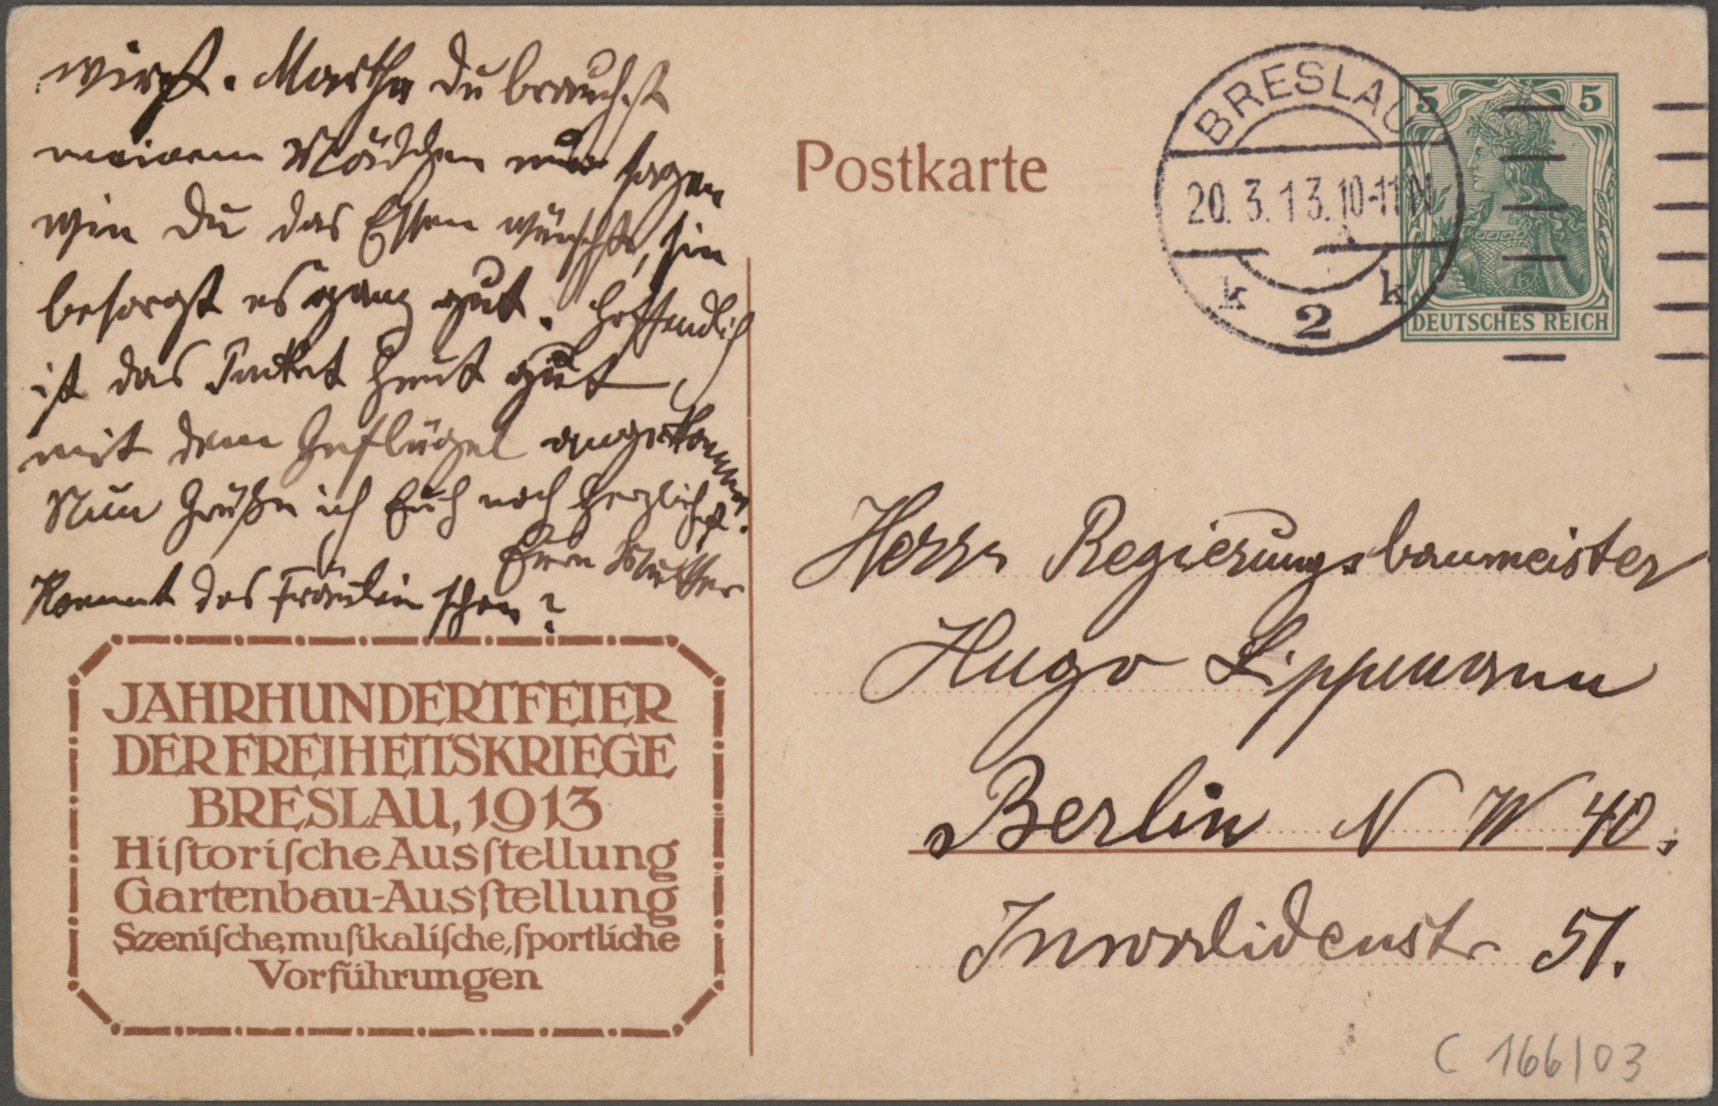 wirst. Martha du brauchst
meinem Mädchen nur sagen
wie Du das Essen wünschst, sie
besorgt es ganz gut. Hoffendlich
ist das Packet heut gut
mit dem Geflügel angekommen.
Nun grüße ich Euch noch herzlichst
Eure Mutter
Kommt das Fräulein schon?
JAHRHUNDERTFEIER
DER FREIHEITSKRIEGE
BRESLAU, 1913
Hiſtoriſche Ausſtellung
Gartenbau-Ausſtellung
Szeniſche, muſikaliſche, ſportliche
Vorführungen
Postkarte
BRESLAU
20.3.13.10-11N
k 2 k
5 5
DEUTSCHES REICH
Herrn Regierungsbaumeister
Hugo Lippmann
Berlin N W 40.
Invalidenstr 51.
C 166/03